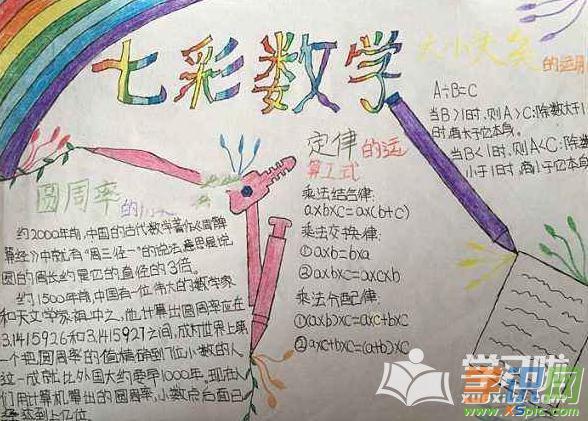 七彩数学
大小关系的运用
A÷B=C
当B>1时,则A>C;除数大于1
时,商大于它本身。
当B<1时,则A<C,除数
小于1时,商小于它本身
定律的运
算工式
乘法结合律:
a×b×c=a×(b+c)
乘法交换律:
①a×b=b×a
②a×b×c=a×c×b
乘法分配律:
①(a×b)×c=a×c+b×c
②a×c+b×c=(a+b)×c
圆周率的
约2000年前,中国的古代数学著作《周髀
算经》中就有“周三径一”的说法,意思是说
圆的周长约是它的直径的3倍。
约1500年前,中国有一位伟大的数学家
和天文学家祖冲之。他计算出圆周率应在
3.1415926和3.1415927之间,成为世界上第
一个把圆周率的值精确到7位小数的人
这一成就比外国大约要早1000年。现在人
们用计算机算出的圆周率,小数点后面已
经达到上亿位
学习啦
学识网
www.XSpic.com